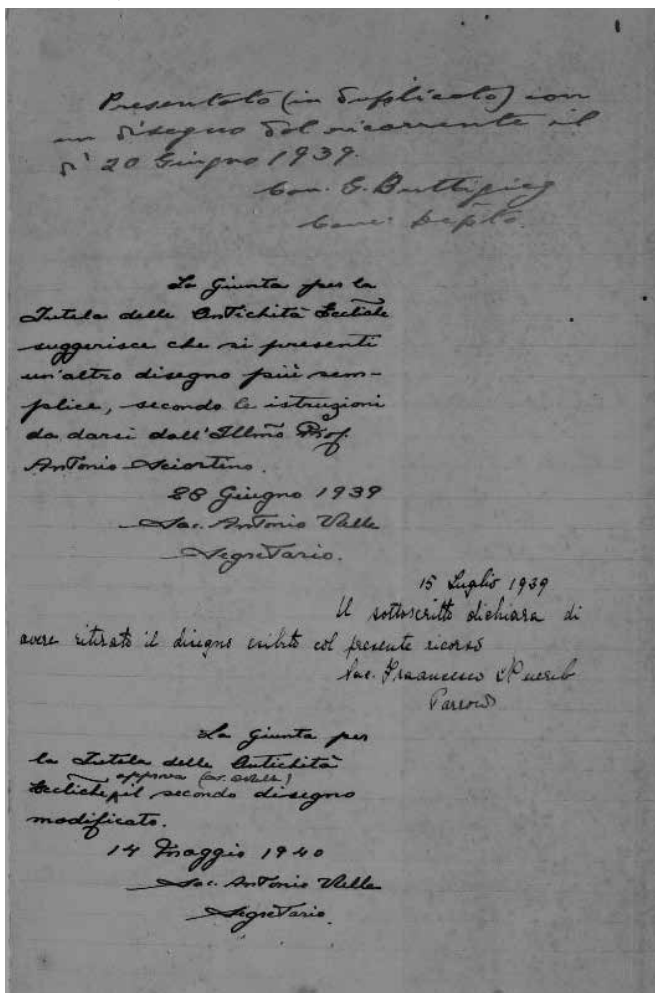 1
Presentato (in duplicato) con
un disegno dal ricorrente il
dì 20 Giugno 1939.
Can. G. Buttigieg
Canc. Depto.
La Giunta per la
Tutela delle Antichità
suggerisce che si presenti
un'altro disegno più sem-
plice, secondo le istruzioni
da darsi dall'Illmo Prof.
Antonio Sciortino.
28 Giugno 1939
Sac. Antonio Valle
Segretario.
15 Luglio 1939
Il sottoscritto dichiara di
avere ritirato il disegno esibito col presente ricorso
Sac. Francesco
La Giunta per
la Tutela delle Antichità
approva
il secondo disegno
modificato.
14 Maggio 1940
Sac. Antonio Valle
Segretario.